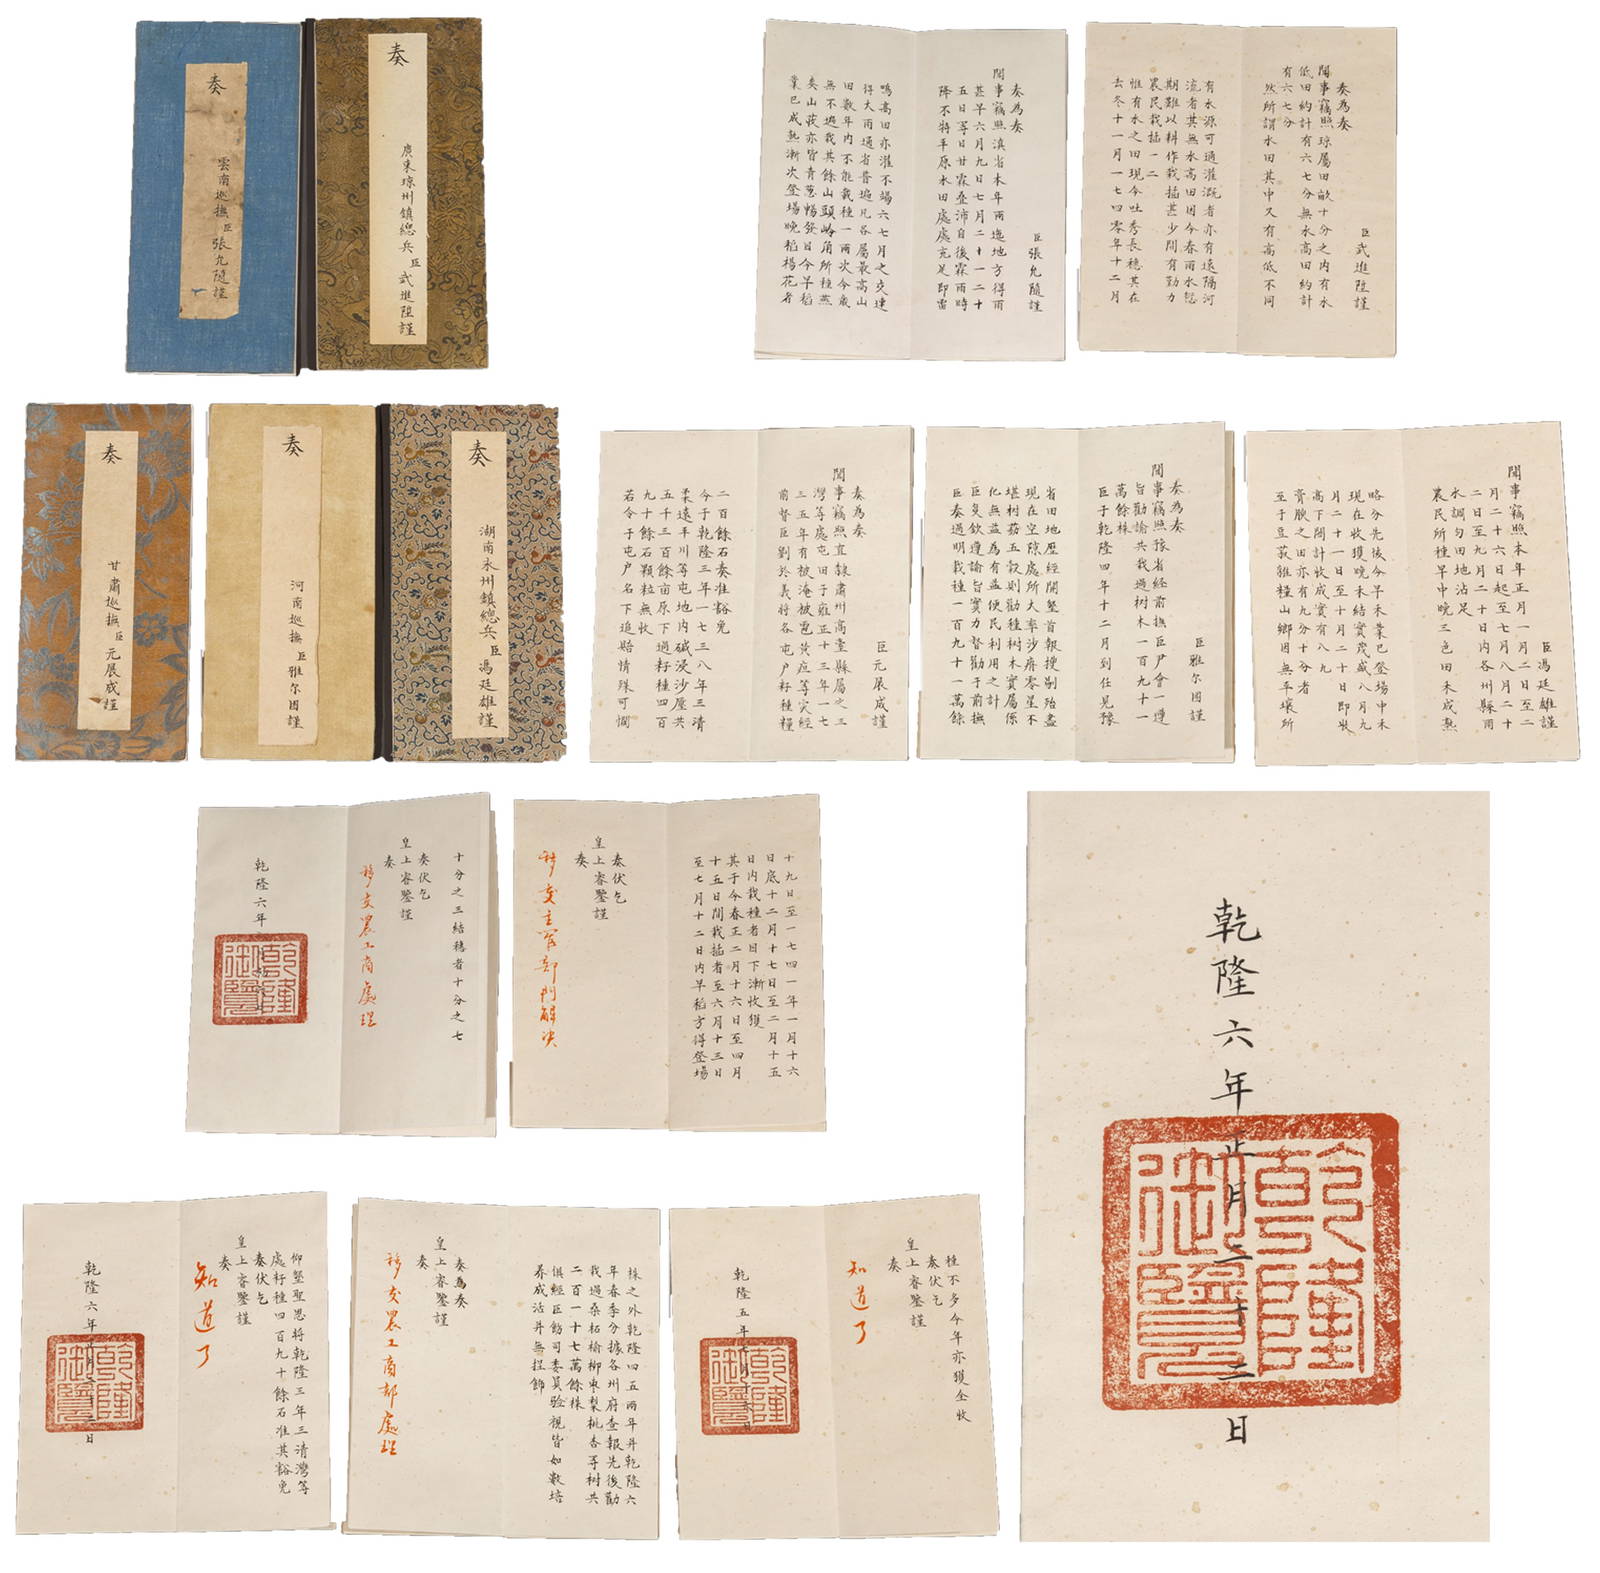 奏
雲南巡撫臣張允隨謹
奏
廣東瓊州鎮總兵臣武進陞謹
臣張允隨謹
奏為奏
聞事竊照滇省本年雨逸地方得雨
甚早六月九日七月二十一二十
五日等日甘霖叠沛自後霖雨時
降不特平原水田處處充足即雷
鳴高田亦灌不竭六七月之交連
得大雨通省普遍凡各屬最高山
田數年內不能栽種一兩次今歲
無不遍栽其餘山頭岭角所種蕎
麥山菽亦皆青蔥暢發日今早稻
業已成熟漸次登場晚稻楊花者
臣武進陞謹
奏為奏
聞事竊照瓊屬田畝十分之內有水
低田約計有六七分無水高田約計
有六七分
然所謂水田其中又有高低不同
有水源可通灌溉者亦有遠隔河
流者其無水高田因今春雨水愆
期難以耕作栽插甚少間有勤力
農民栽插一二
惟有水之田現今吐秀長穗其在
去冬十一月一七四零年十二月
奏
甘肅巡撫臣元展成謹
奏
河南巡撫臣雅尔图謹
奏
湖南永州鎮總兵臣馮廷雄謹
臣元展成謹
奏為奏
聞事竊照直隸肅州高臺縣屬之三
灣等處屯田于雍正十三年一七
三五年有被淹被雹黃疸等灾經
前督臣劉於義將各屯户籽種糧
二百餘石奏准豁免
今于乾隆三年一七三八年三清
柔遠半川等屯地内碱浸沙壓共
五千三百餘亩原下過籽種四百
九十餘石顆粒無收
若令于屯户名下追賠情殊可憫
臣雅尔图謹
奏為奏
聞事竊照豫省經前撫臣尹會一遵
旨勸諭共栽過树木一百九十一
萬餘株
臣于乾隆四年十二月到任見豫
省田地歷經開墾首報搜剔殆盡
現在空隙處所大率沙瘠零星不
堪树蓺五穀則勸種树木實屬係
化無益為有益便民利用之計
臣复欽遵諭旨實力督勸于前撫
臣奏過明栽種一百九十一萬餘
臣馮廷雄謹
聞事竊照本年正月一月二日至二
月二十六日起至七月八月二十
二日至九月二十日内各州縣雨
水調匀田地沾足
農民所種早中晚三色田禾成熟
略分先後今早禾業已登場中禾
現在收獲晚禾結實茂盛八月九
月二十一日至十月二十日即收
高下閤計收成實有八九
膏腴之田亦有九分十分者
至于豆菽雜糧山鄉因無平壤所
十分之三結穗者十分之七
奏伏乞
皇上睿鑒謹
奏
移交農工商處理
乾隆六年
十九日至一七四一年一月十六
日底十二月十七日至二月十五
日内栽種者目下漸收獲
其于今春正二月十六日至四月
十五日間栽插者至六月十三日
至七月十二日内早稻方得登場
奏伏乞
皇上睿鑒謹
奏
移交主管部門解决
乾隆六年正月二十二日
乾隆御覽
仰墾聖恩将乾隆三年三清灣等
處籽種四百九十餘石准其豁免
奏伏乞
皇上睿鑒謹
奏
知道了
乾隆六年正月二十二日
乾隆御覽
株之外乾隆四五兩年并乾隆六
年春季分據各州府查報先後勸
栽過桑柘榆柳枣梨桃杏等树共
二百一十七萬餘株
俱經臣飭司委員验視皆如數培
养成活并無捏飾
奏為奏
皇上睿鑒謹
奏
移交農工商部處理
種不多今年亦獲全收
奏伏乞
皇上睿鑒謹
奏
知道了
乾隆五年七月十六日
乾隆御覽
乾隆御覽